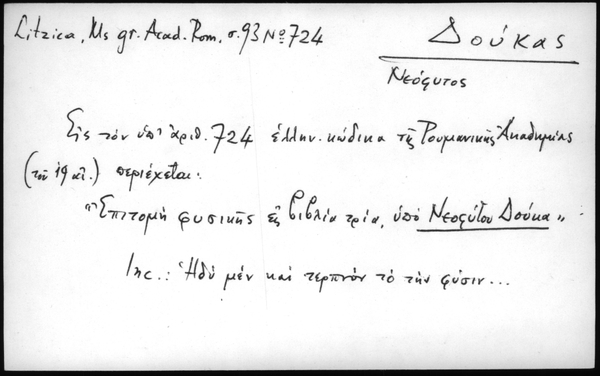 Litzica, Ms gr. Acad. Rom, σ. 93 Nº 724
Δούκας
Νεόφυτος
Εἰς τὸν ὑπ' ἀριθ. 724 ἑλλην. κώδικα τῆς Ρουμανικῆς Ἀκαδημίας
(τοῦ 19 αἰ.) περιέχεται:
"Ἐπιτομὴ φυσικῆς εἰς βιβλία τρία, ὑπὸ Νεοφύτου Δούκα"
Inc.: Ἡδὺ μὲν καὶ τερπνὸν τὸ τὴν φύσιν...